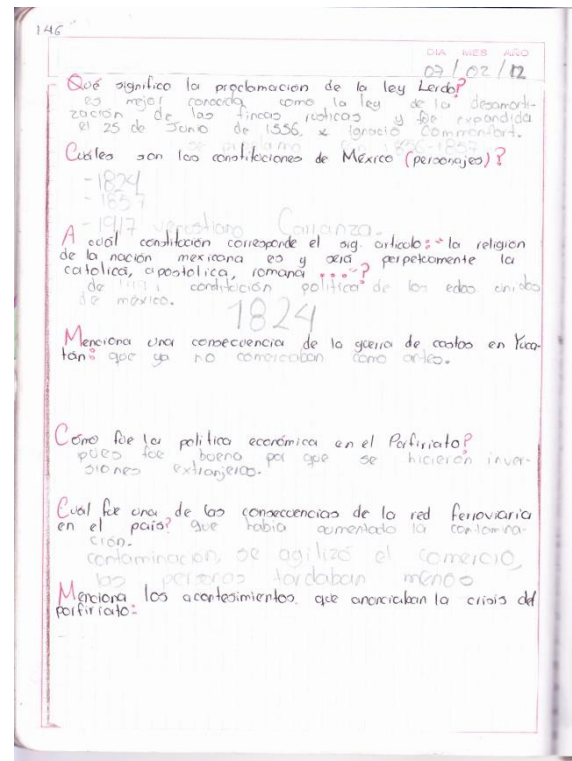 146
DIA MES AÑO
07/02/12
Qué significo la proclamacion de la ley Lerdo?
es mejor conocida como la ley de la desamorti-
zación de las fincas rusticas y fue expandida
el 25 de Junio de 1556. x Ignacio Commonfort.
se 1856-1857
Cuáles son las constituciones de México (personajes)?
-1824
-1857
-1917 venustiano Carranza.
A cuál constitución corresponde el sig. articulo: "la religion
de la nación mexicana es y será perpetuamente la
catolica, apostolica, romana ..."?
de constitución politica de los edos unidos
de méxico.
1824
Menciona una consecuencia de la guerra de castas en Yuca-
tán: que ya no comerciaban como antes.
Cómo fue la politica económica en el Porfiriato?
pues fue buena por que se hicieron inver-
siones extranjeras.
Cual fue una de las consecuencias de la red ferroviaria
en el país? que había aumentado la contamina-
ción.
contaminacion, se agilizó el comercio,
las personas tardaban menos
Menciona los acontesimientos que anunciaban la crisis del
porfiriato: